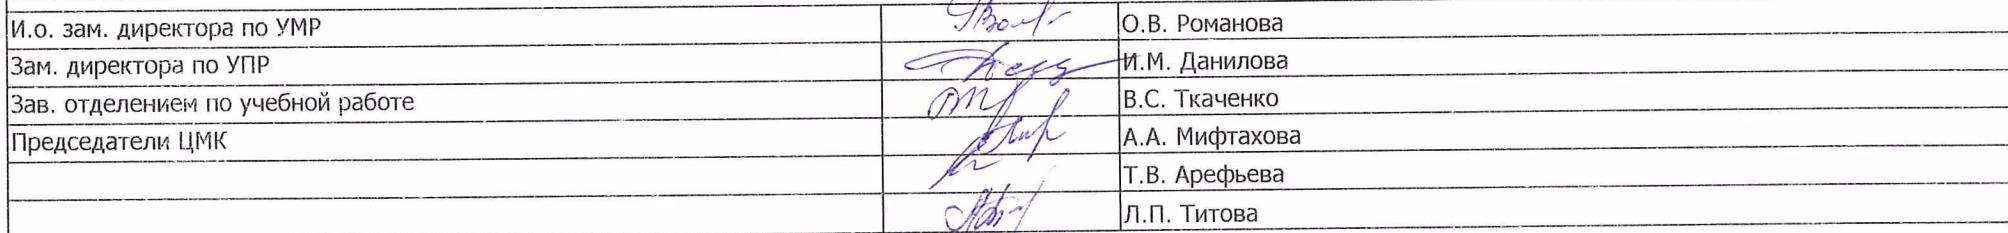 И.о. зам. директора по УМР О.В. Романова
Зам. директора по УПР И.М. Данилова
Зав. отделением по учебной работе В.С. Ткаченко
Председатели ЦМК А.А. Мифтахова
Т.В. Арефьева
Л.П. Титова